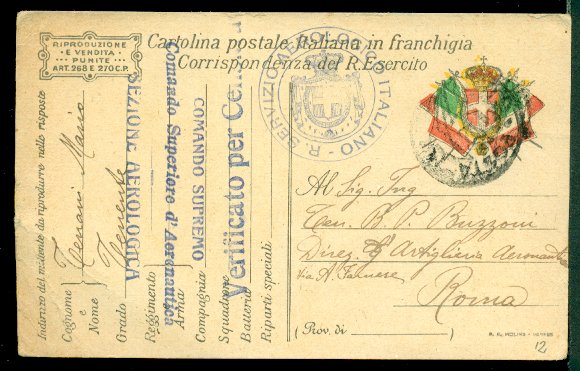 RIPRODUZIONE
E VENDITA
PUNITE
ART. 268 E 270 C.P.
Cartolina postale Italiana in franchigia
Corrispondenza del R. Esercito
R. SERVIZIO AEROLOGICO ITALIANO
Indirizzo del mittente da riprodurre nelle risposte
Cognome
e
Nome Mario
Grado Tenente
SEZIONE AEROLOGICA
Reggimento
Comando Superiore d'Aeronautica
Arma
Compagnia
COMANDO SUPREMO
Squadrone
Verificato per Cen
Batteria
Riparti speciali
Al Sig. Ing
Ten. B. P. Buzzoni
Direz. d'Artiglieria Aeronautica
Via A. Farnese
Roma
(Prov. di )
12